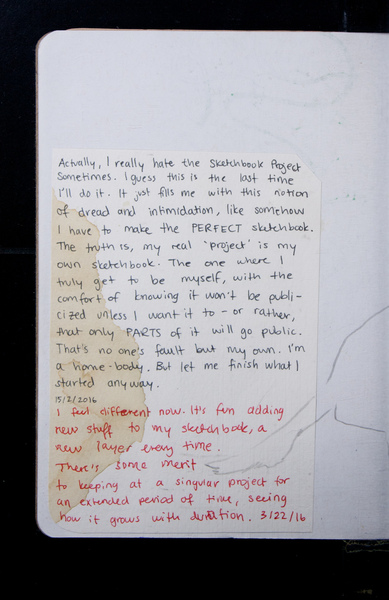 Actually, I really hate the Sketchbook Project
Sometimes. I guess this is the last time
I'll do it. It just fills me with this notion
of dread and intimidation, like somehow
I have to make the PERFECT sketchbook.
The truth is, my real 'project' is my
own sketchbook. The one where I
truly get to be myself, with the
comfort of knowing it won't be publi-
cized unless I want it to - or rather,
that only PARTS of it will go public.
That's no one's fault but my own. I'm
a home-body. But let me finish what I
started anyway.
15/2/2016
I feel different now. It's fun adding
new stuff to my sketchbook, a
new layer every time.
There's some merit
to keeping at a singular project for
an extended period of time, seeing
how it grows with duration. 3/22/16